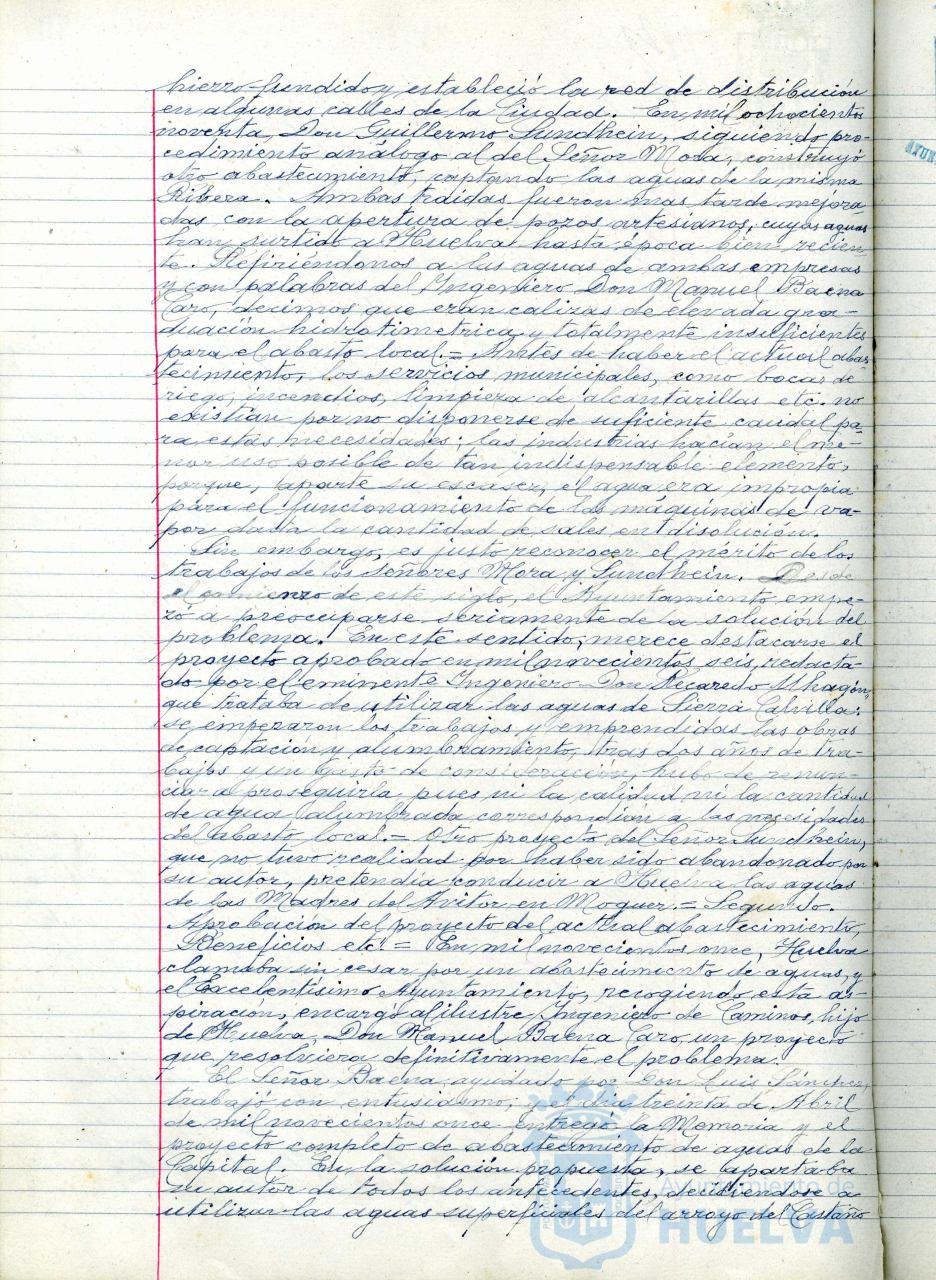 hierro fundido y estableció la red de distribución
en algunas calles de la Ciudad. En mil ochocientos
noventa, Don Guillermo Sundhein, siguiendo pro-
cedimiento análogo al del Señor Mora, construyó
otro abastecimiento, captando las aguas de la misma
Ribera. Ambas traídas fueron mas tarde mejora-
das con la apertura de pozos artesianos, cuyas aguas
han surtido a Huelva hasta época bien recien-
te. Refiriéndonos a las aguas de ambas empresas
y con palabras del Ingeniero Don Manuel Baena
Caro, decimos que eran calizas de elevada gra-
duación hidrotimetrica y totalmente insuficientes
para el abasto local.= Antes de haber el actual abas-
tecimiento, los servicios municipales, como bocas de
riego, incendios, limpieza de alcantarillas etc. no
existian por no disponerse de suficiente caudal pa-
ra estas necesidades; las industrias hacían el me-
nor uso posible de tan indispensable elemento,
porque, aparte su escasez, el agua era impropia
para el funcionamiento de las máquinas de va-
por dada la cantidad de sales en disolución.
Sin embargo, es justo reconocer el mérito de los
trabajos de los señores Mora y Sundhein. Desde
el comienzo de este siglo, el Ayuntamiento empe-
zó a preocuparse seriamente de la solución del
problema. En este sentido, merece destacarse el
proyecto aprobado en mil novecientos seis, redacta-
do por el eminente Ingeniero Don Recaredo Uhagón,
que trataba de utilizar las aguas de Sierra Calvilla:
se empezaron los trabajos y emprendidas las obras
de captación y alumbramiento, tras dos años de tra-
bajos y un gasto de consideración, hubo de renun-
ciar a proseguirla pues ni la calidad ni la cantidad
de agua alumbrada correspondían a las necesidades
del abasto local.= Otro proyecto del Señor Sundhein,
que no tuvo realidad por haber sido abandonado por
su autor, pretendía conducir a Huelva las aguas
de las Madres del Avitor en Moguer.= Segundo.
Aprobación del proyecto del actual abastecimiento,
Beneficios etc.= En mil novecientos once, Huelva
clamaba sin cesar por un abastecimiento de aguas, y
el Excelentísimo Ayuntamiento, recogiendo esta as-
piración, encargó al ilustre Ingeniero de Caminos, hijo
de Huelva, Don Manuel Baena Caro, un proyecto
que resolviera definitivamente el problema.
El Señor Baena, ayudado por Don Luis Sánchez,
trabajó con entusiasmo, y el día treinta de Abril
de mil novecientos once entregó la Memoria y el
proyecto completo de abastecimiento de aguas de la
Capital. En la solución propuesta, se apartaba
su autor de todos los antecedentes, decidiendose a
utilizar las aguas superficiales del arroyo del Castaño
Ayuntamiento de
HUELVA